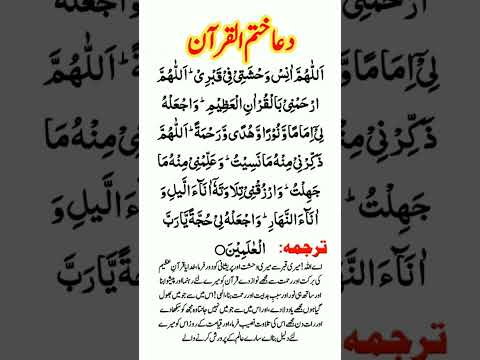 دعا ختم القرآن
اَللّٰهُمَّ اٰنِسْ وَحْشَتِيْ فِيْ قَبْرِيْ ۔ اَللّٰهُمَّ
ارْحَمْنِيْ بِالْقُرْاٰنِ الْعَظِيْمِ ۔ وَاجْعَلْهُ
لِيْٓ اِمَامًا وَّنُوْرًا وَّهُدًى وَّرَحْمَةً ۔ اَللّٰهُمَّ
ذَكِّرْنِيْ مِنْهُ مَا نَسِيْتُ ۔ وَعَلِّمْنِيْ مِنْهُ مَا
جَهِلْتُ ۔ وَارْزُقْنِيْ تِلَاوَتَهٗٓ اٰنَآءَ الَّيْلِ وَ
اٰنَآءَ النَّهَارِ ۔ وَاجْعَلْهُ لِيْ حُجَّةً يَّارَبَّ
الْعٰلَمِيْنَ ○
ترجمہ:
اے اللہ! میری قبر سے میری وحشت اور پریشانی کو دور فرما، خدایا قرآن عظیم
کی برکت اور رحمت سے مجھے نواز دے قرآن کو میرے لئے رہنما اور پیشوا بنا
اور ساتھ ہی نور اور سبب ہدایت اور رحمت بنا، الہی! اس میں سے جو میں بھول
گیا ہوں مجھے یاد دلا دے، اور اس میں سے جو میں نہیں جانتا وہ مجھ کو سکھا دے
اور رات دن مجھے اس کی تلاوت نصیب فرما، اور قیامت کے روز اس کو میرے
لئے دلیل بنا اے سارے عالم کے پرورش کرنے والے